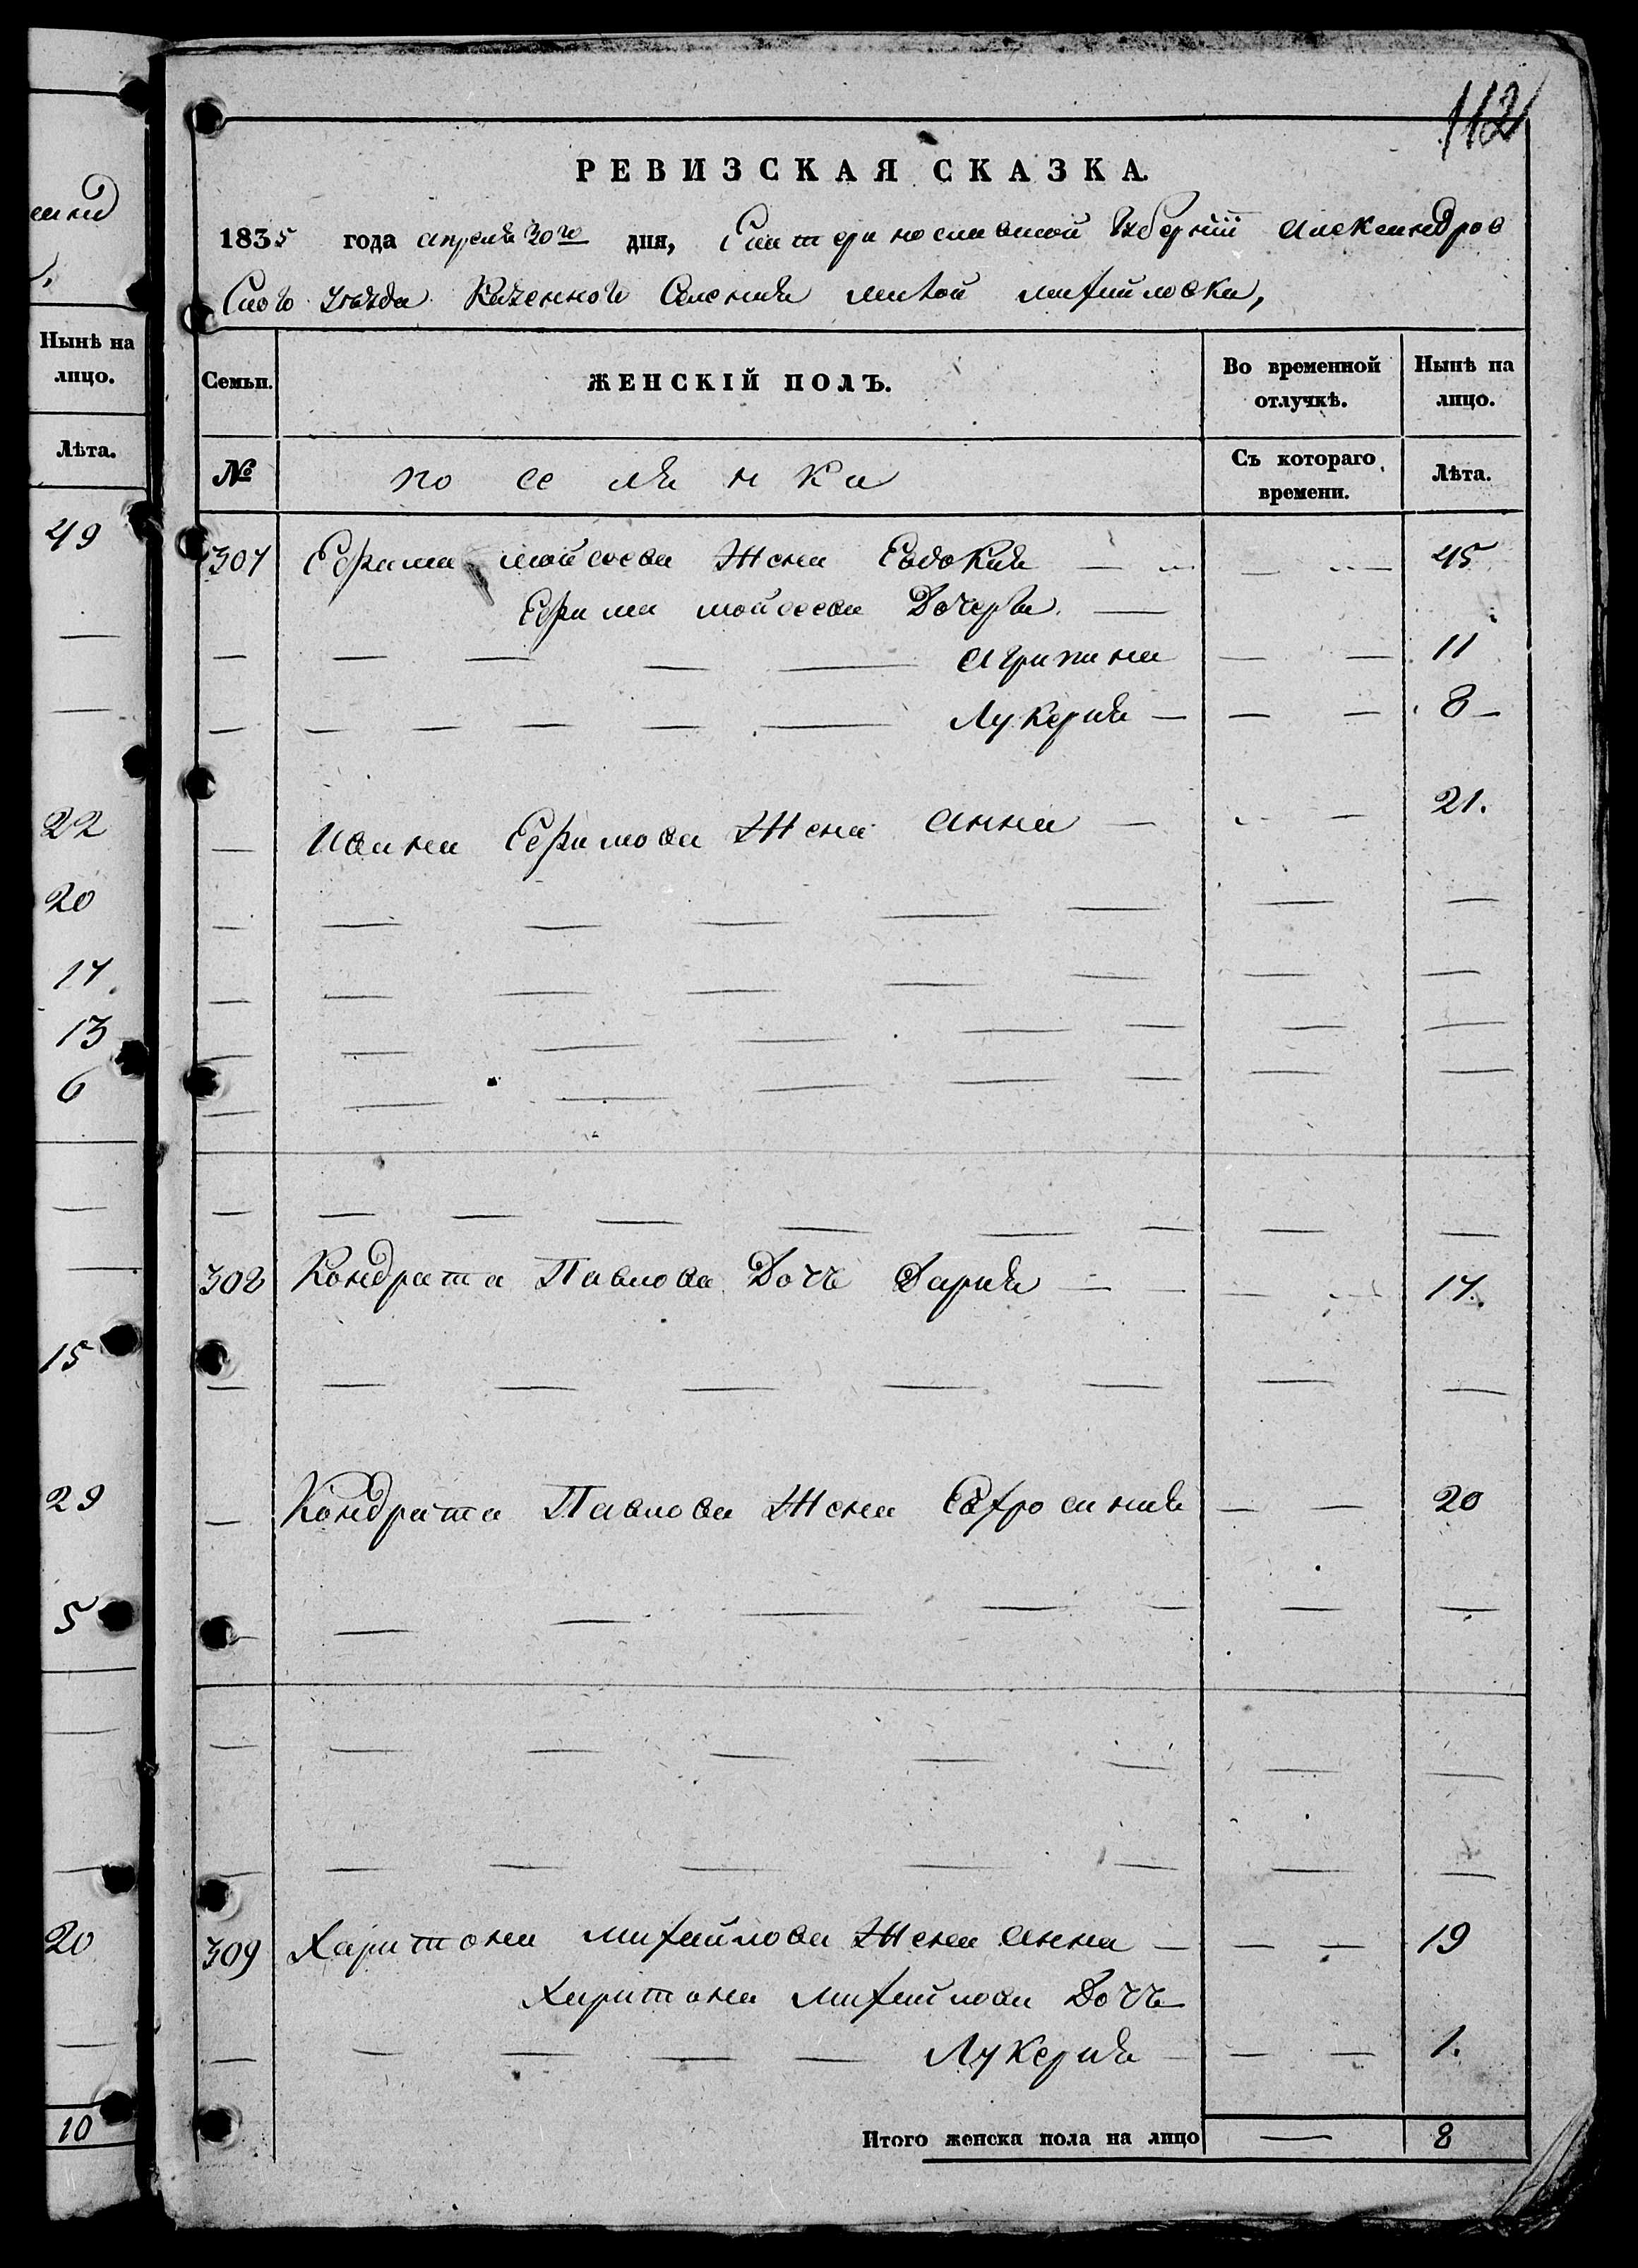 112
РЕВИЗСКАЯ СКАЗКА.
1835 года апреля 30го дня, Екатеринославской Губернiи Александров
Скаго уезда Казеннаго Селения малой михайловки,
Нынѣ на лицо.
Лѣта.
49
22
20
17
13
6
15
29
5
20
10
Семьи. ЖЕНСКІЙ ПОЛЪ. Во временной отлучкѣ. Нынѣ на лицо.
№ поселянка Съ котораго времени. Лѣта.
307 Ефима мойсеева Жена Евдокия 45
Ефима мойсеева Дочеря
агрипина 11
Лукерия 8
Ивана Ефимова Жена анна 21.
308 Кондрата Павлова Дочь Дария 17.
Кондрата Павлова Жена Ефросиния 20
309 Харитона михайлова Жена анна 19
Харитона михайлова Дочь
Лукерия 1.
Итого женска пола на лицо 8